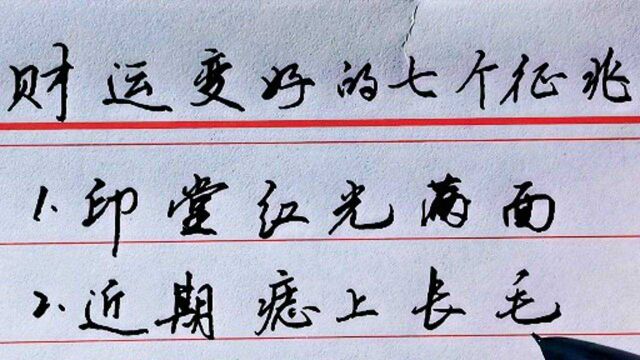 财运变好的七个征兆
1.印堂红光满面
2.近期痣上长毛